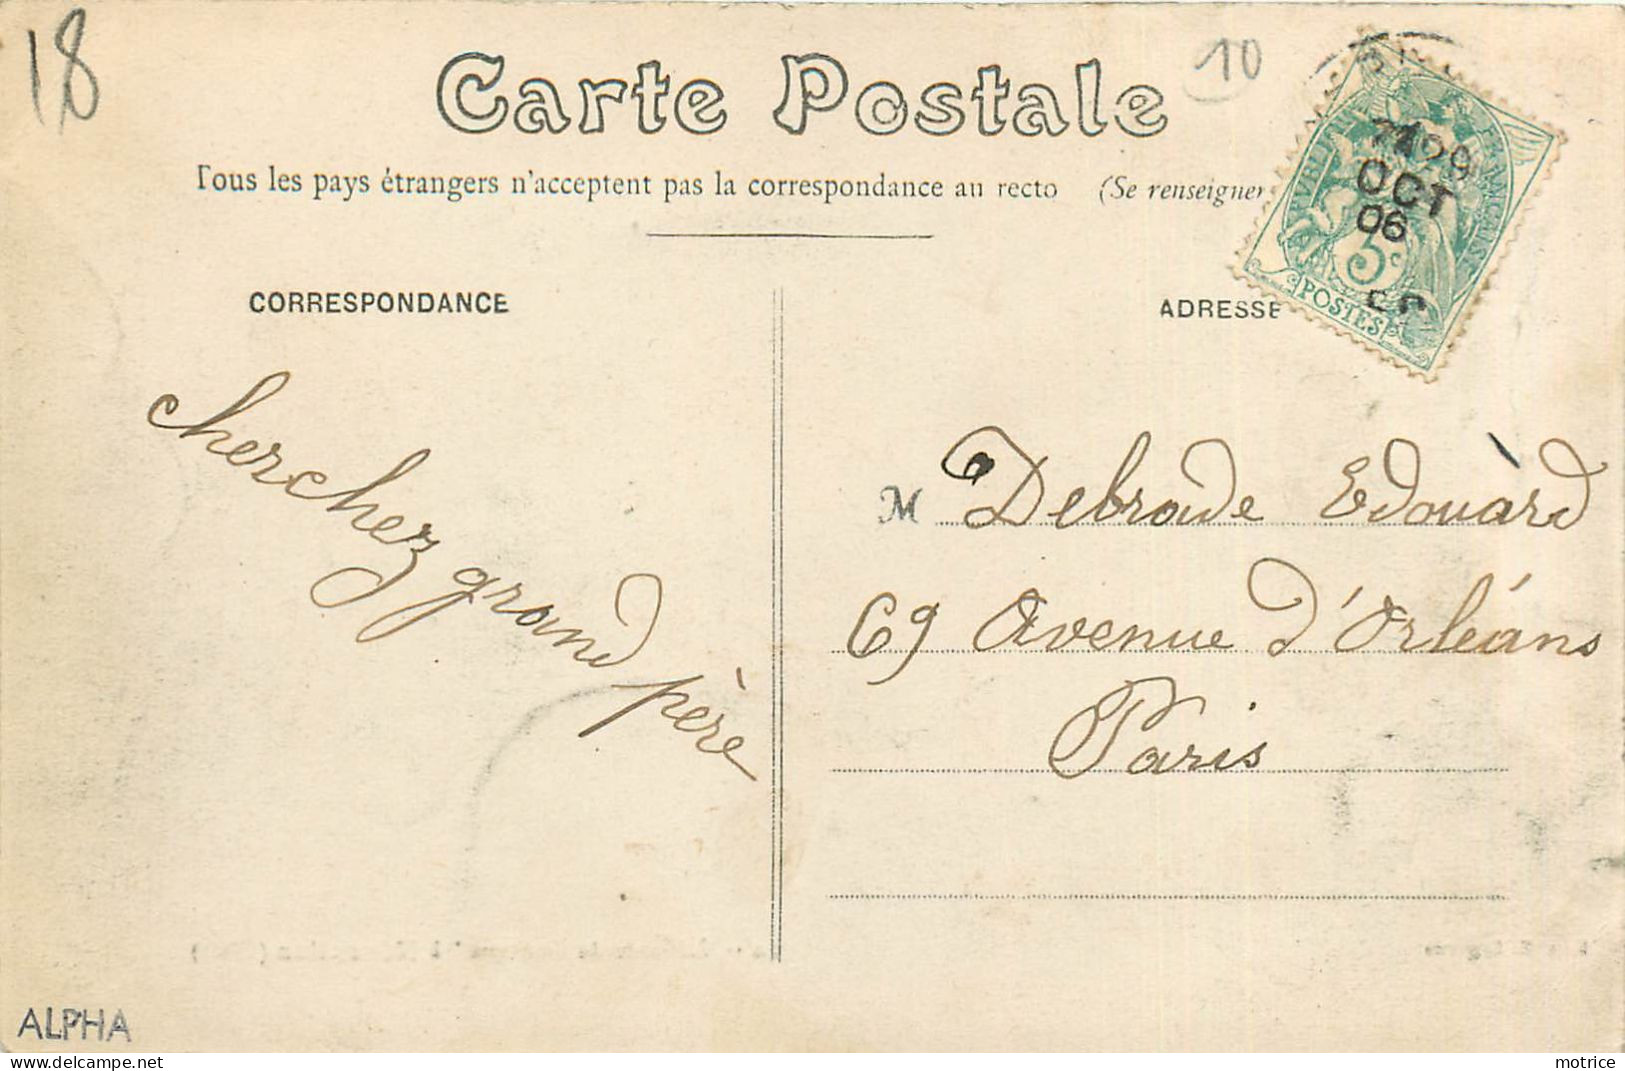 18
10
Carte Postale
Tous les pays étrangers n'acceptent pas la correspondance au recto (Se renseigner
CORRESPONDANCE
ADRESSE
29
OCT
06
5c
POSTES
cherchez grand père
M Debrade Edouard
69 Avenue d'Orléans
Paris
ALPHA
motrice